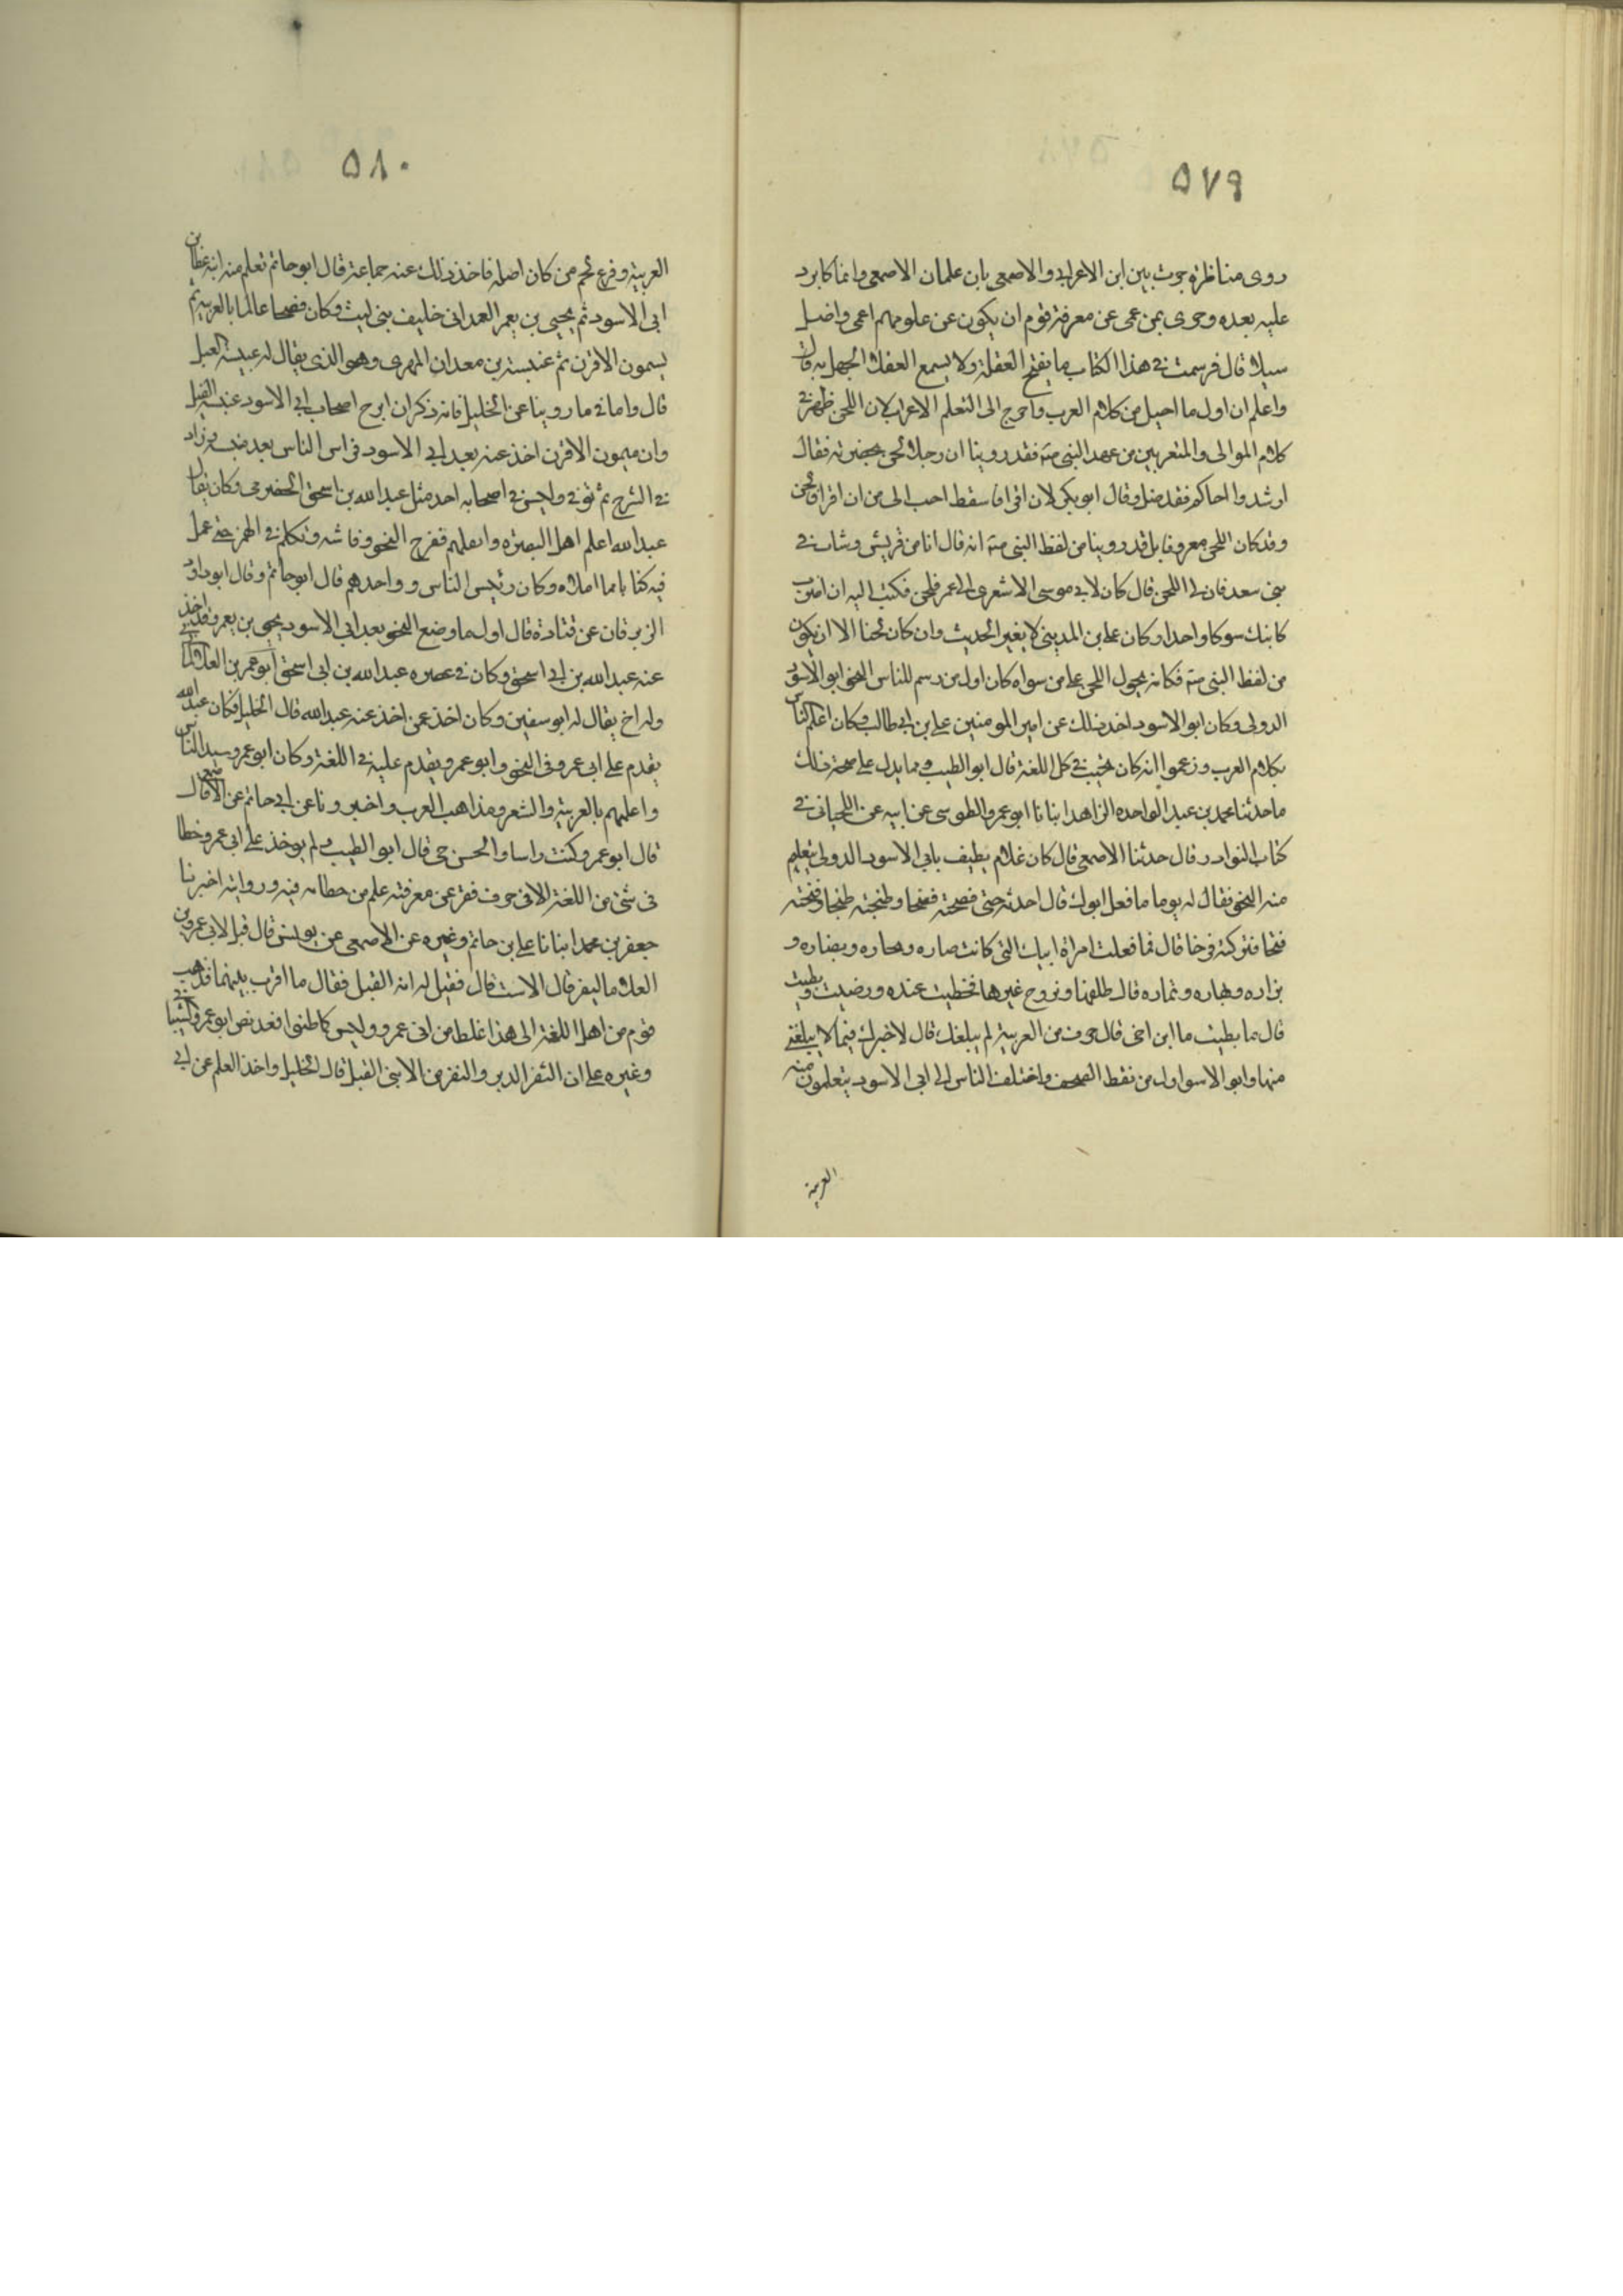 ٥٧٩
روى مناظرة جرت بين ابن الاعرابي والاصمعي بان علمان الاصمعي وانما كابرد
عليه بعده وحرى بمن عمى عن معرفة قوم ان يكون عن علومهم اعمى واضل
سبيلا قال فرسمت في هذا الكتاب ما يفتح الغفلة ولا يسمع العقلا الجهل به قال
واعلم ان اول ما احيل من كلام العرب واحوج الى التعلم الاعراب لان اللحن ظهر في
كلام الموالى والمتعربين من عهد النبي صة فقدروينا ان رجلا لحن بحضرته فقال
ارشدوا اخاكم فقد ضل وقال ابو بكر لان اقرا فاسقط احب الى من ان اقرا فالحن
وقد كان اللحن معروفا بل قد روينا من لفظ النبي صة انه قال انا من قريش ونشات في
بني سعد فان لى اللحن قال كان لابي موسى الاشعري الى عمر فلحن فكتب اليه ان اضرب
كاتبك سوطا واحدا وكان على بن المديني لا يغير الحديث وان كان لحنا الا ان يكون
من لفظ النبي صة فكانه يجول اللحن على من سواه كان اول من رسم للناس النحو ابو الاسود
الدولى وكان ابو الاسود اخذ ذلك عن امير المومنين على بن ابي طالب وكان اعلم الناس
بكلام العرب وزعموا انه كان يجيب في كل اللغة قال ابو الطيب ومما يدل على صحة ذلك
ما حدثنا محمد بن عبد الواحد الزاهد انبانا ابو عمرو الطوسى عن ابيه عن اللحياني في
كتاب النوادر قال حدثنا الاصمعي قال كان غلام يطيف بابي الاسود الدولى يتعلم
منه النحو فقال له يوما ما فعل ابوك قال اخذته حتى فضخته فضخا وطبخته طبخا وفنخته
فنخا فتركته فرخا قال فما فعلت امراة ابيك التي كانت تصاره وتجاره وتضاره و
تزاره وتهاره وتماره قال طلقها وتزوج غيرها فحظيت عنده ورضيت وبظيت
قال فما بظيت يا ابن اخى قال حرف من العربية لم يبلغك قال لا خير لك فيما لا يبلغني
منها وابو الاسو اول من نقط المصحف واختلف الناس الى ابي الاسود يتعلمون منه
العربية
٥٨٠
العربية وفرع لهم من كان اصله فاخذ ذلك عنه جماعة قال ابو حاتم تعلم منه ابنه عطا بن
ابي الاسود ثم يحيى بن يعمر العدواني خليف بني ليث وكان فصيحا عالما بالعربية ثم
ميمون الاقرن ثم عنبسة بن معدان المهري وهو الذي يقال له عنبسة الفيل
قال واما فيما روينا عن الخليل فانه ذكر ان ابرح اصحاب ابي الاسود عنبسة الفيل
وان ميمون الاقرن اخذ عنه بعد ابي الاسود فراس الناس بعد عنبسة وزاد
في الشرح ثم توفي وليس في اصحابه احد مثل عبد الله بن اسحق الحضرمي وكان يقال
عبد الله اعلم اهل البصرة وانقلهم ففرح النحو وقاسه وتكلم في الهمز حتى عمل
فيه كتابا مما املاه وكان رئيس الناس وواحدهم قال ابو حاتم وقال ابو داود
الزبرقان عن قتادة قال اول ما وضع النحو بعد ابي الاسود يحيى بن يعمر وقد اخذ
عنه عبد الله بن ابي اسحق وكان في عصره عبد الله بن ابي اسحق ابو عمر بن العلا
وله اخ يقال له ابو سفين وكان اخذ عمن اخذ عنه عبد الله قال الخليل فكان عبد الله
يقدم على ابي عمرو في النحو وابو عمرو يقدم عليه في اللغة وكان ابو عمرو سيد الناس
واعلمهم بالعربية والشعر ومذاهب العرب واخبرونا عن ابي حاتم عن الاصمعي قال
قال ابو عمرو كنت راسا والحسن حي قال ابو الطيب ولم يوخذ على ابي عمرو خطا
في شئ من اللغة الا في حرف قصر عن معرفته علم من خطاه فيه وروايته اخبرنا
جعفر بن محمد انبانا على بن حاتم وغيره عن الاصمعي عن يونس قال قيل لابي عمرو بن
العلا ما الثفر قال الاست قال فقيل له انه القبل فقال ما اقرب بينهما فذهب
قوم من اهل اللغة الى هذا غلط من ابي عمرو وليس كما ظنوا فقد نص ابو عمرو الشيباني
وغيره على ان الثفر الدبر والثفر من الانثى القبل قال الخليل واخذ العلم عن ابي